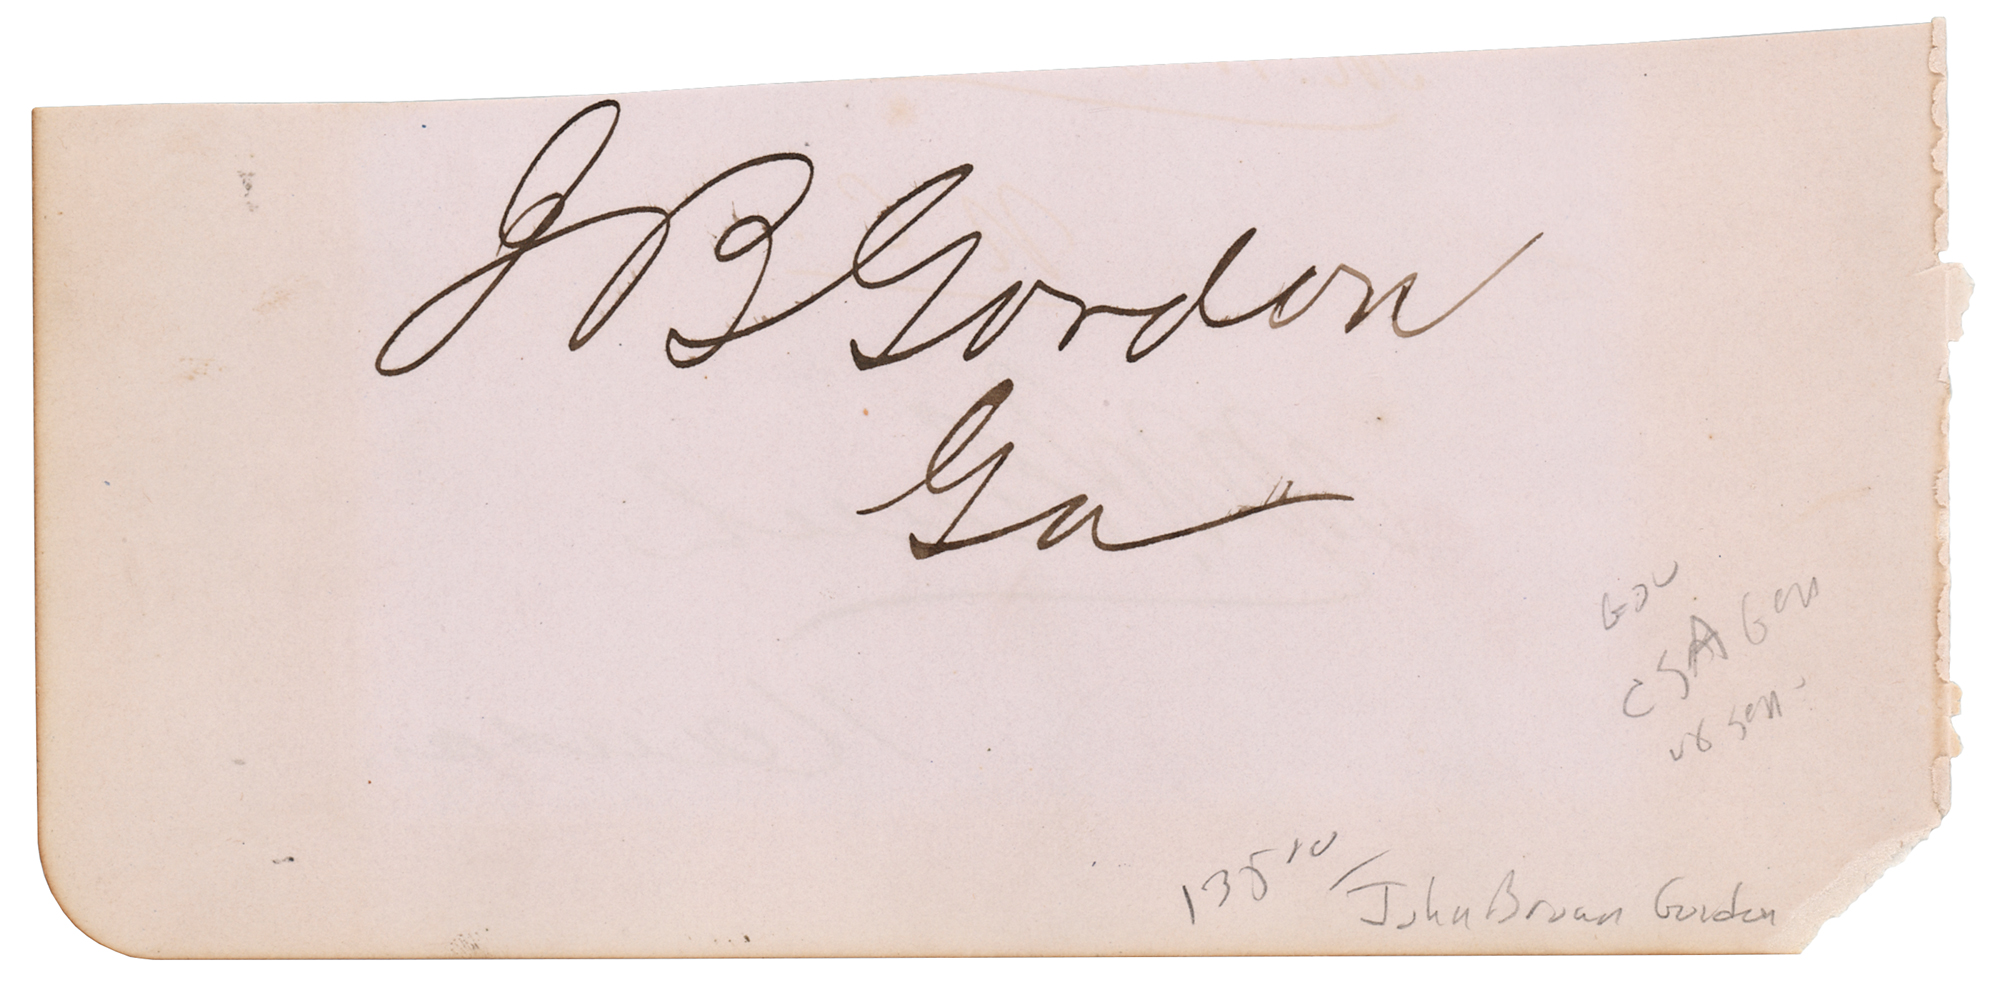 J B Gordon
Ga
Gov
CSA Gen
US Sen.
John Brown Gordon